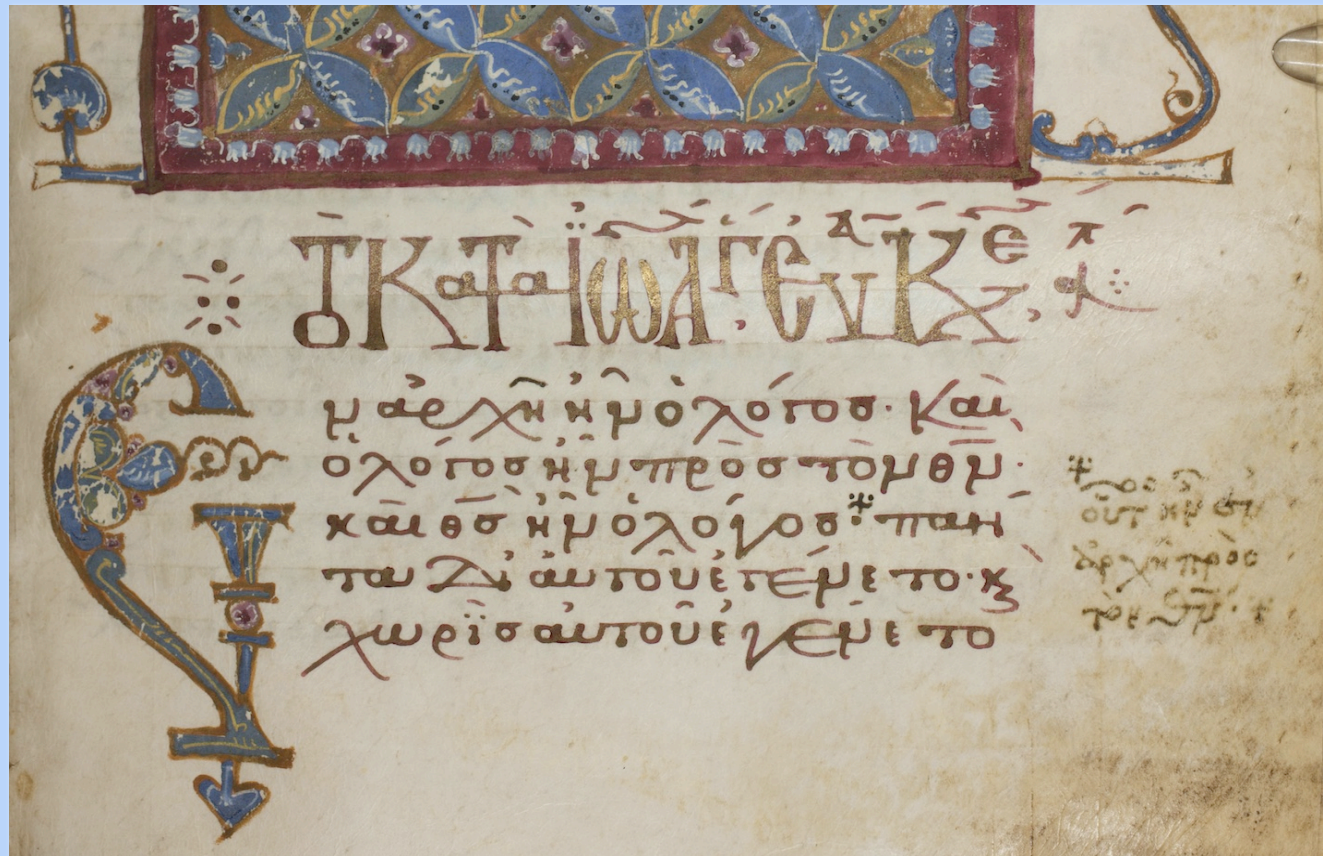 Τὸ κατὰ Ἰω ἅγ εὐ
Ἐν ἀρχῆ ἦν ὁ λόγος· Καὶ
ὁ λόγος ἦν πρὸς τὸν θ̅ν̅·
καὶ θ̅ς̅ ἦν ὁ λόγος· πάν
τα δι αὐτοῦ ἐγένετο· ϗ
χωρῒς αὐτοῦ ἐγένετο
οὗτος ἦν ἐν
ἀρχῆ πρὸς
τὸν θ̅ν̅·